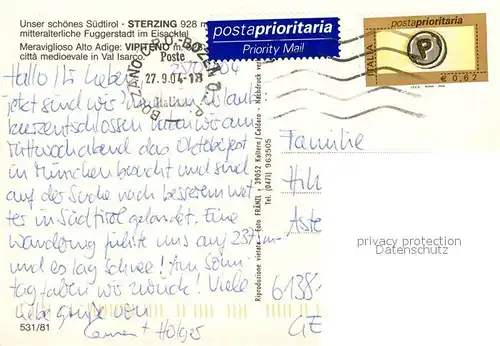 Unser schönes Südtirol - STERZING 928 m
mittelalterliche Fuggerstadt im Eisacktal
Meraviglioso Alto Adige: VIPITENO m.
città medioevale in Val Isarco
postaprioritaria
Priority Mail
postaprioritaria
ITALIA
P
€ 0,62
BOLZANO C.P.O. - BOZEN
Poste
27.9.04-18
Italiane
Hallo Ihr Lieben
jetzt sind wir im Urlaub
kurzentschlossen haben wir am
Mittwochabend das Oktoberfest
in München besucht und sind
auf der Suche nach besserem Wet
ter in Südtirol gelandet. Eine
Wanderung führte uns auf 2371 m
und es lag Schnee! Am Sonn
tag fahren wir zurück! Viele
liebe Grüße von
+ Holger
Riproduzione vietata - Foto FRÄNZL - 39052 Kaltern / Caldaro - Nachdruck
Tel. (0471) 963505
Familie
Hill
Aste
6135
GE
privacy protection
Datenschutz
531/81